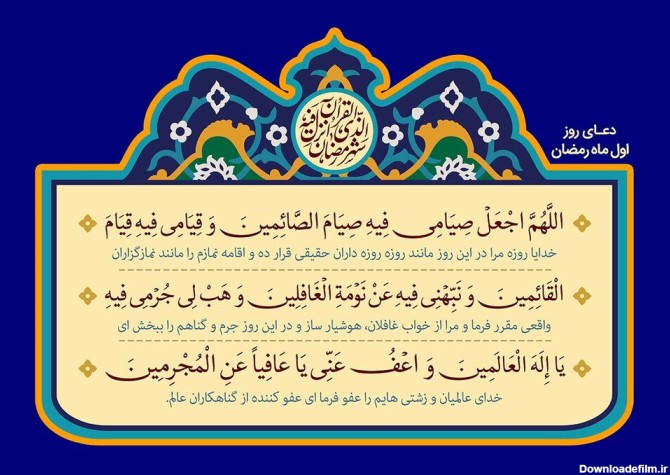 دعـای روز
اول ماه رمضان
شهر رمضان الذی انزل فیه القرآن
اللَّهُمَّ اجْعَلْ صِیَامِی فِیهِ صِیَامَ الصَّائِمِینَ وَ قِیَامِی فِیهِ قِیَامَ
خدایا روزه مرا در این روز مانند روزه روزه داران حقیقی قرار ده و اقامه نمازم را مانند نمازگزاران
الْقَائِمِینَ وَ نَبِّهْنِی فِیهِ عَنْ نَوْمَةِ الْغَافِلِینَ وَ هَبْ لِی جُرْمِی فِیهِ
واقعی مقرر فرما و مرا از خواب غافلان، هوشیار ساز و در این روز جرم و گناهم را ببخش ای
یَا إِلَهَ الْعَالَمِینَ وَ اعْفُ عَنِّی یَا عَافِیاً عَنِ الْمُجْرِمِینَ
خدای عالمیان و زشتی هایم را عفو فرما ای عفو کننده از گناهکاران عالم.
Downloadefilm.ir